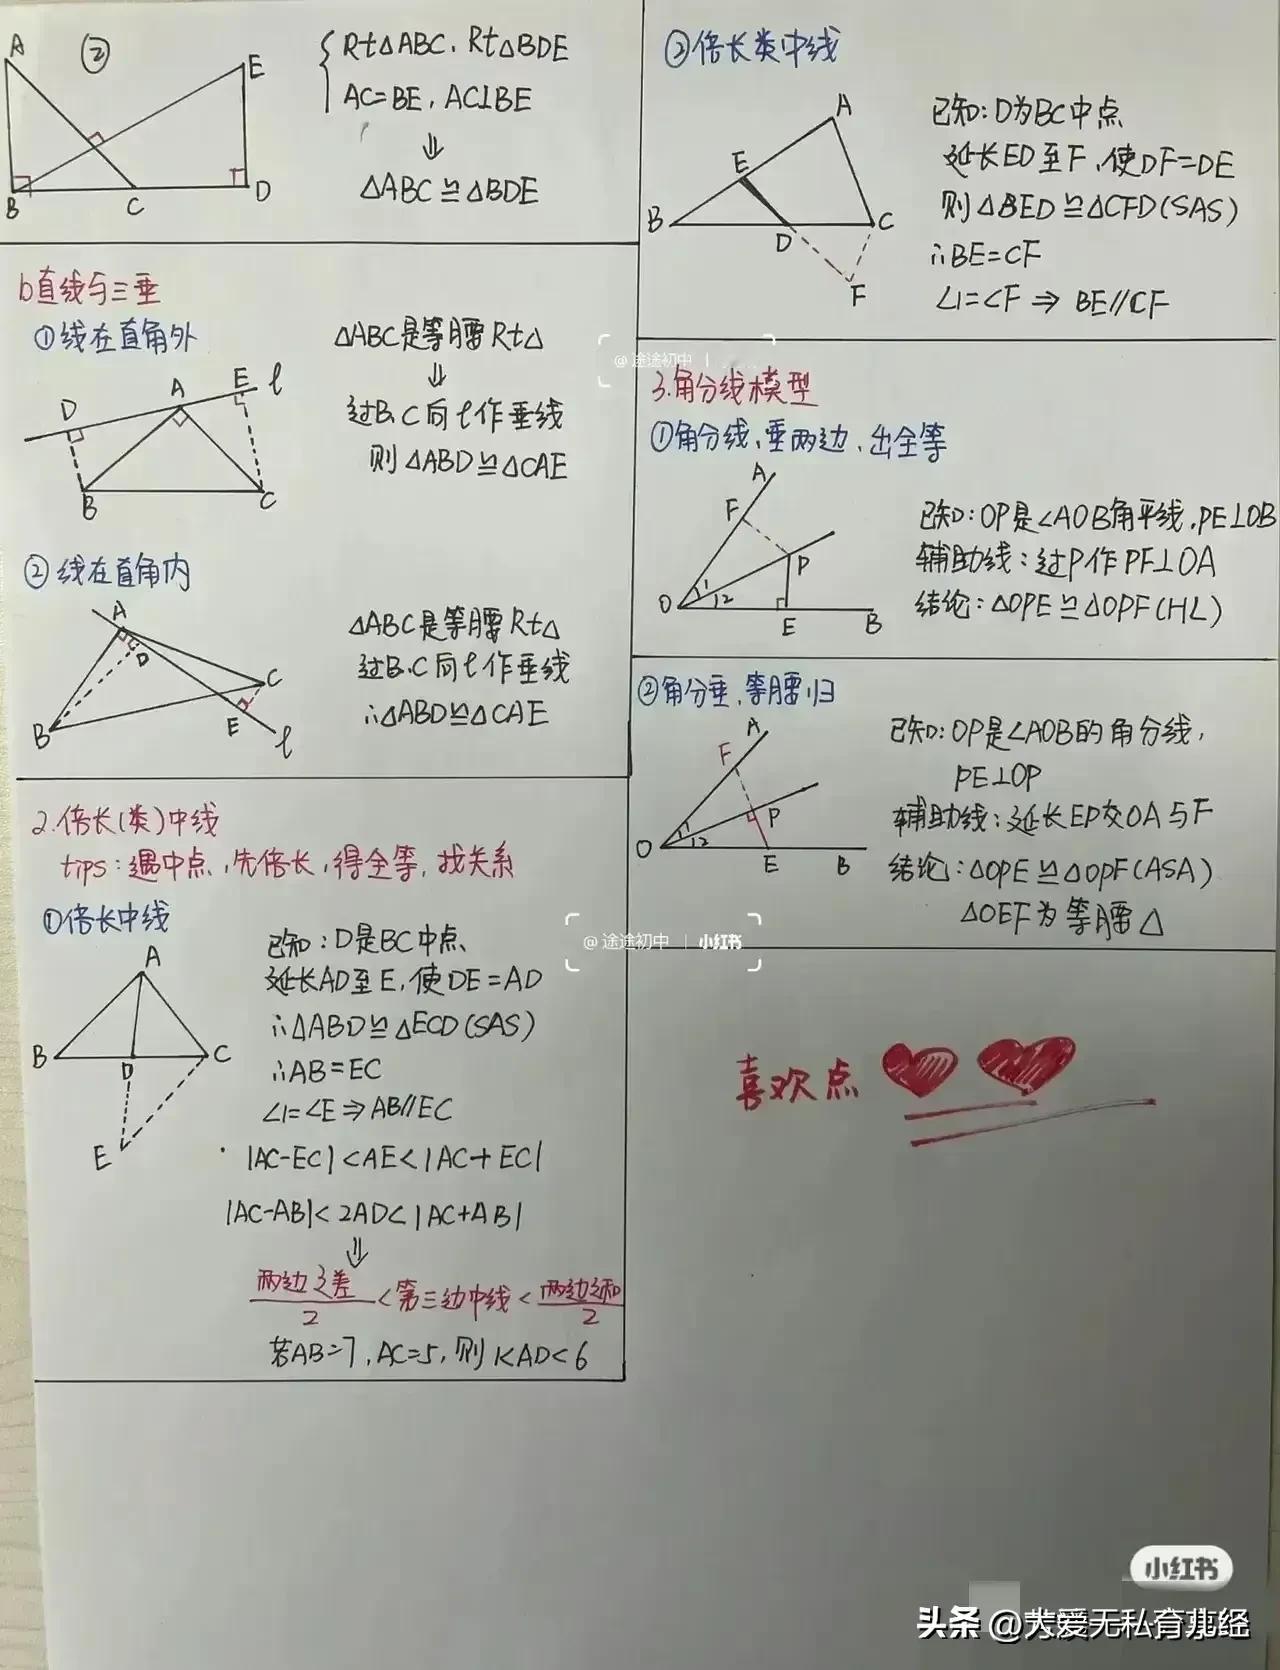 ②
A
E
B
C
D
Rt△ABC, Rt△BDE
AC=BE, AC⊥BE
⇓
△ABC≌△BDE
b直线与三垂
①线在直角外
D
A
E
ℓ
B
C
△ABC是等腰Rt△
⇓
过B.C向ℓ作垂线
则△ABD≌△CAE
②线在直角内
A
D
C
B
E
ℓ
△ABC是等腰Rt△
过B.C向ℓ作垂线
∴△ABD≌△CAE
2.倍长(类)中线
tips:遇中点,先倍长,得全等,找关系
①倍长中线
A
B
D
C
E
已知:D是BC中点、
延长AD至E,使DE=AD
∴△ABD≌△ECD(SAS)
∴AB=EC
∠1=∠E⇒AB∥EC
|AC-EC|<AE<|AC+EC|
|AC-AB|<2AD<|AC+AB|
⇓
两边之差/2<第三边中线<两边之和/2
若AB=7,AC=5,则1<AD<6
②倍长类中线
A
E
B
D
C
F
已知:D为BC中点
延长ED至F,使DF=DE
则△BED≌△CFD(SAS)
∴BE=CF
∠1=∠F⇒BE∥CF
@途途初中 |
3.角分线模型
①角分线,垂两边,出全等
A
F
P
O
1
2
E
B
已知:OP是∠AOB角平线,PE⊥OB
辅助线:过P作PF⊥OA
结论:△OPE≌△OPF(HL)
②角分垂,等腰归
A
F
P
O
1
2
E
B
已知:OP是∠AOB的角分线,
PE⊥OP
辅助线:延长EP交OA与F
结论:△OPE≌△OPF(ASA)
△OEF为等腰△
@途途初中 | 小红书
喜欢点
小红书
头条 @大爱无私育儿经